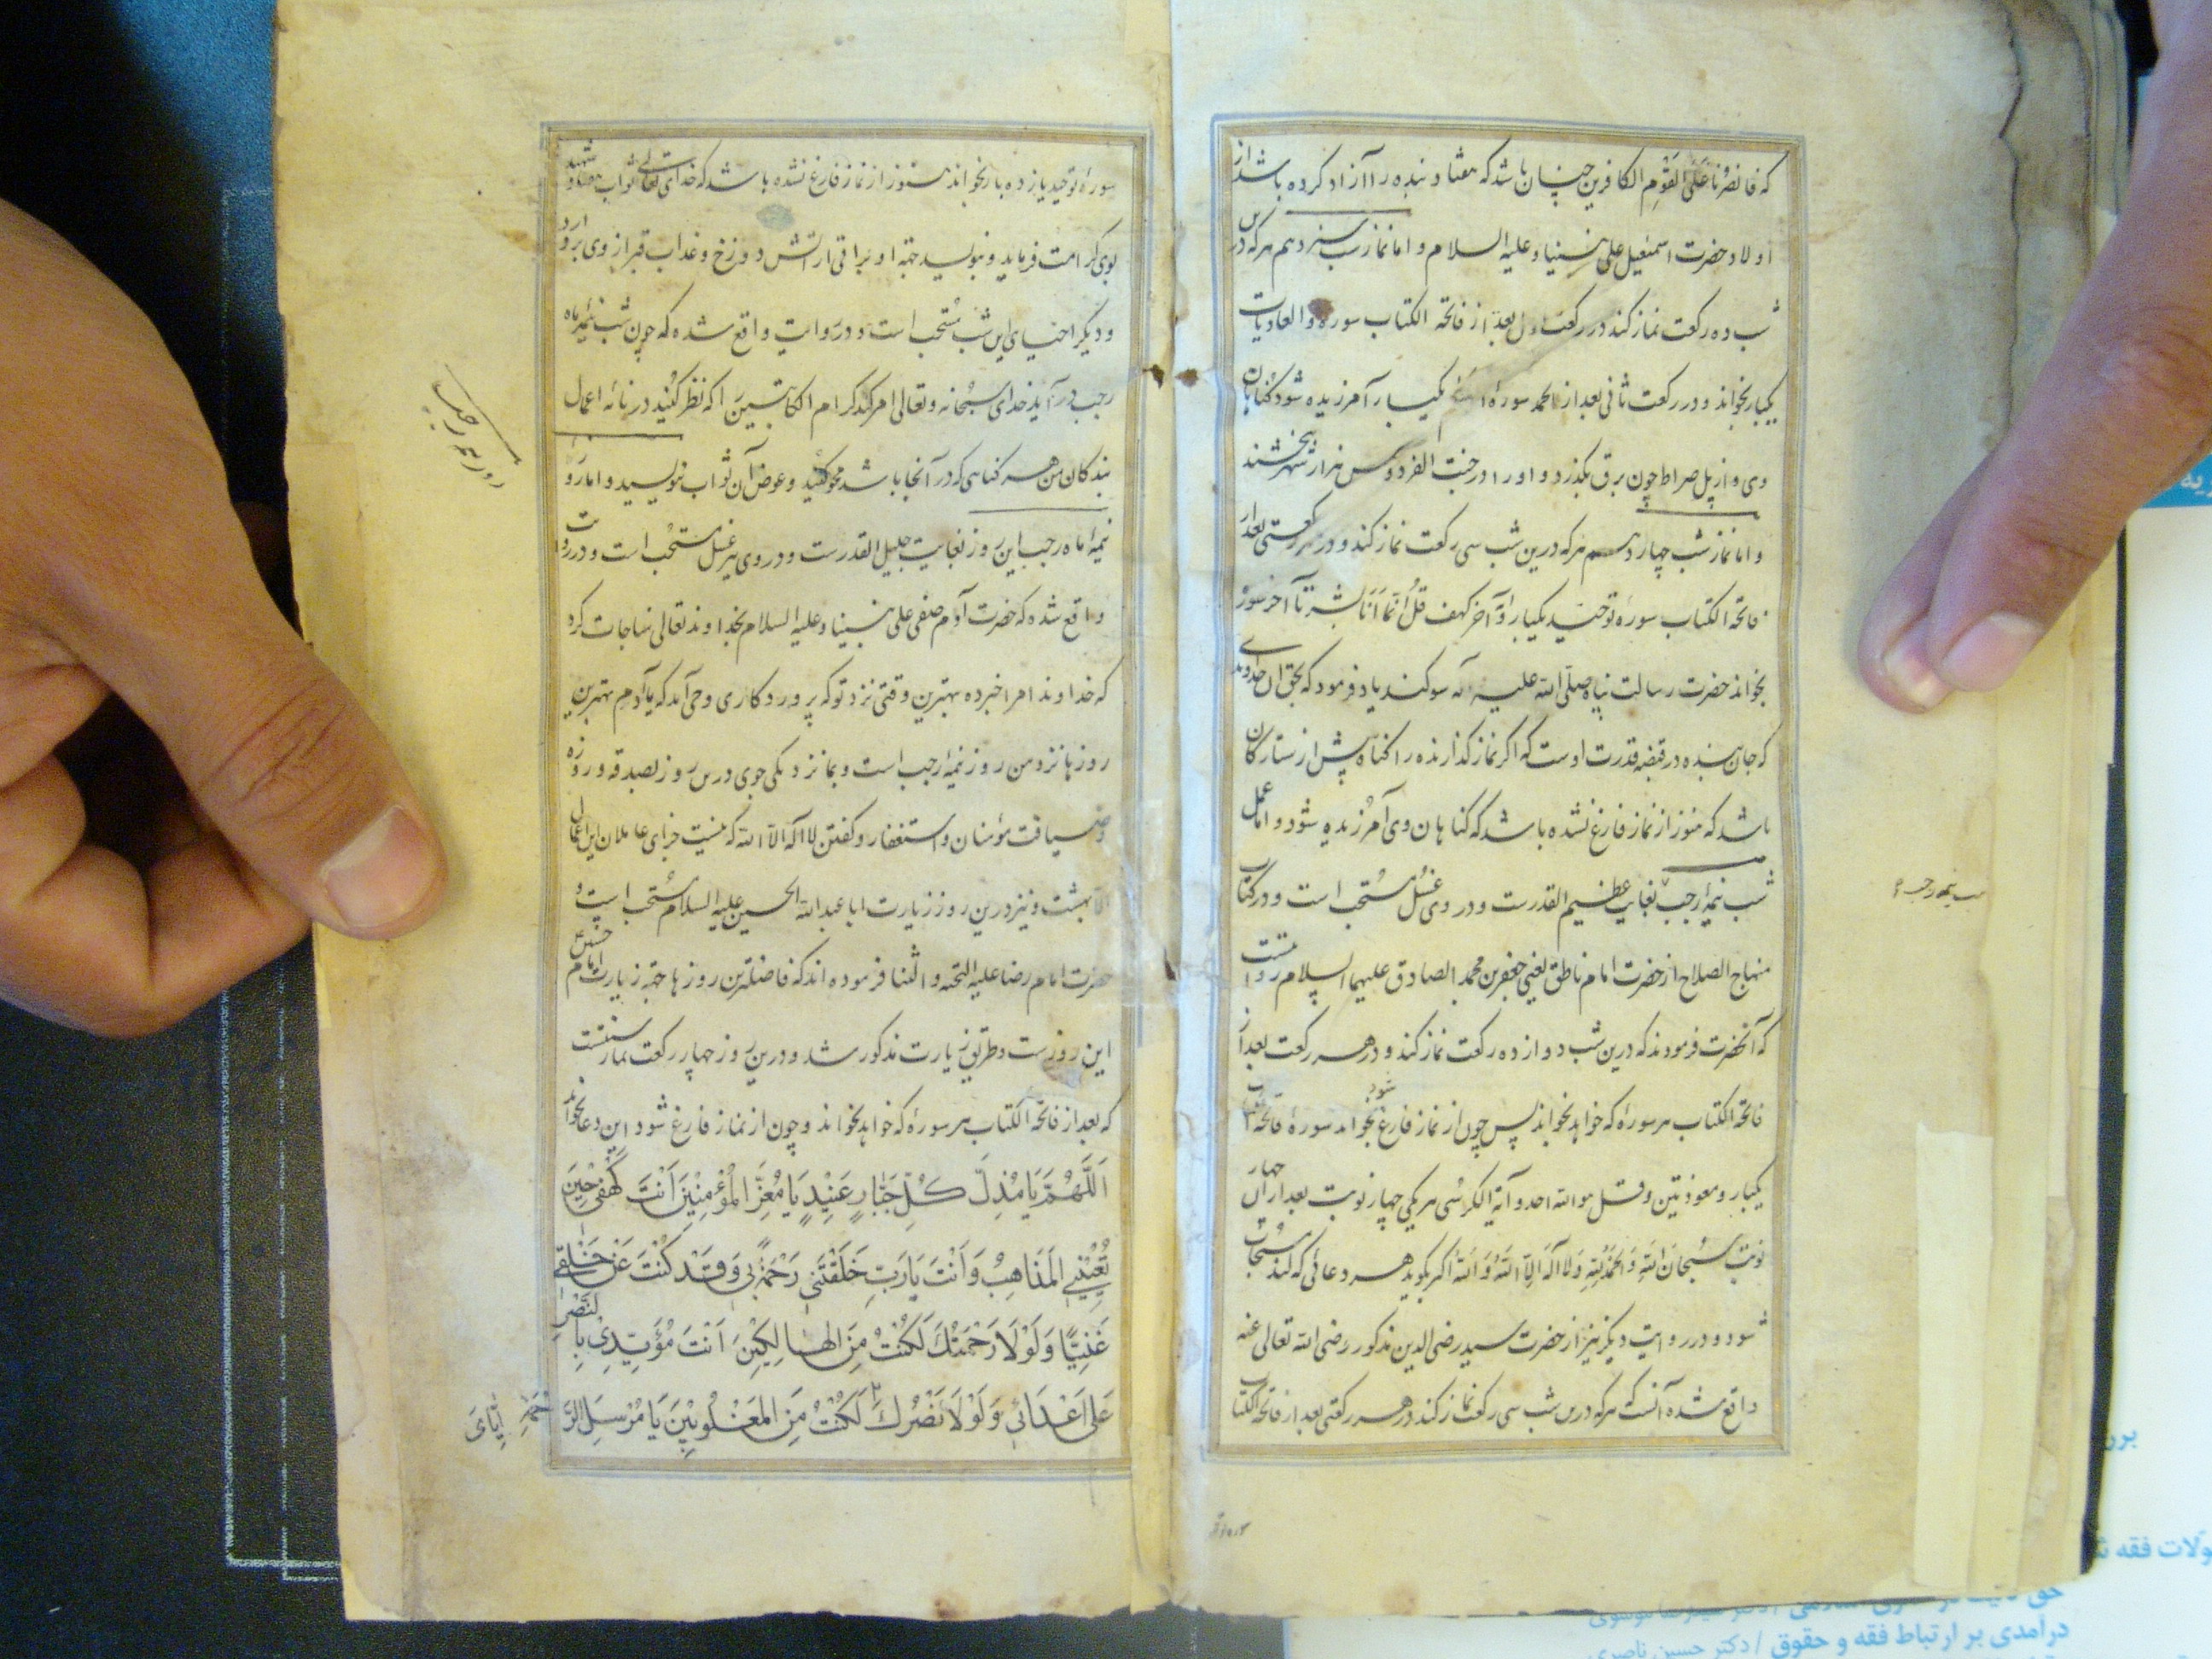 که فانصرنا علی القوم الکافرین چنان باشد که هفتاد بنده را آزاد کرده باشد از
اولاد حضرت اسمعیل علی نبینا و علیه السلام و اما نماز شب سیزدهم هرکه درین
شب ده رکعت نماز کند در رکعت اول بعد از فاتحه الکتاب سوره والعادیات
یکبار بخواند و در رکعت ثانی بعد از الحمد سورهٔ یکبار آمرزیده شود گناهان
وی و از پل صراط چون برق بگذرد و او را در جنت الفردوس هزار شهر بخشند
و اما نماز شب چهاردهم هرکه درین شب سی رکعت نماز کند و در هر رکعتی بعد از
فاتحة الکتاب سوره توحید یکبار و آخر کهف قُل اِنَّما اَنَا بَشَرٌ تا آخر سوره
بخواند حضرت رسالت پناه صلّی الله علیه و آله سوکند یاد فرمود که بحق آن خداوندی
که جان بنده در قبضه قدرت اوست که اگر نماز گذارنده را گناه پیش از ستارگان
باشد که هنوز از نماز فارغ نشده باشد که گناهان وی آمرزیده شود و اما عمل
شب نیمهٔ رجب بغایت عظیم القدرست و در وی غسل مستحب است و در کتاب
منهاج الصلاح از حضرت امام ناطق یعنی جعفر بن محمد الصادق علیهما السلام روایتست
که آنحضرت فرمودند که درین شب دوازده رکعت نماز کند و در هر رکعت بعد از
فاتحة الکتاب هر سورهٔ که خواهد بخواند پس چون از نماز فارغ شود بخواند سورهٔ فاتحة
یکبار و معوذتین و قل هو الله احد و آیة الکرسی هر یکی چهار نوبت بعد از آن چهار
نوبت سُبْحانَ اللهِ وَ الْحَمْدُ لِلّهِ وَ لا اِلهَ اِلَّا اللهُ وَ اللهُ اَکْبَر بگوید هر دعائی که کند مستجاب
شود و در روایت دیگر نیز از حضرت سید رضی الدین مذکور رضی الله تعالی عنه
واقع شده آنست که هرکه درین شب سی رکعت نماز کند در هر رکعتی بعد از فاتحة الکتاب
شب نیمه رجب
سورهٔ توحید یازده بار بخواند هنوز از نماز فارغ نشده باشد که خدای تعالی ثواب هفتاد شهید
بوی کرامت فرماید و بنویسد جهة او براتی از آتش دوزخ و عذاب قبر از وی بردارد
و دیگر احیای این شب مستحب است و در روایت واقع شده که چون شب نیمهٔ ماه
رجب در آید خدای سبحانه و تعالی امر کند کرام الکاتبین را که نظر کنید در نامهٔ اعمال
بندگان من هر گناهی که در آنجا باشد محو کنید و عوض آن ثواب بنویسید و اما روز
نیمهٔ ماه رجب این روز بغایت جلیل القدرست و در وی نیز غسل مستحب است و در روایت
واقع شده که حضرت آدم صفی علی نبینا و علیه السلام بخداوند تعالی مناجات کرد
که خداوندا مرا خبر ده بهترین وقتی نزد تو که پروردگاری وحی آمد که یا آدم بهترین
روزها نزد من روز نیمهٔ رجب است و بما نزدیکی جوی درین روز بصدقه و روزه
و ضیافت مؤمنان و استغفار و گفتن لا اله الا الله که نیست جزای عاملان این اعمال
الا بهشت و نیز درین روز زیارت ابا عبد الله الحسین علیه السلام مستحب است و
حضرت امام رضا علیه التحیه و الثنا فرموده اند که فاضلترین روزها جهة زیارت امام حسین ع
این روزست و طریق زیارت مذکور شد و درین روز چهار رکعت نماز سنتست
که بعد از فاتحة الکتاب هر سورهٔ که خواهد بخواند و چون از نماز فارغ شود این دعا بخواند
اَللّهُمَّ یَا مُذِلَّ کُلِّ جَبَّارٍ عَنِیدٍ یَا مُعِزَّ الْمُؤْمِنِینَ اَنْتَ کَهْفِی حِینَ
تُعْیِینِی الْمَذَاهِبُ وَ اَنْتَ یَا رَبِّ خَلَقْتَنِی رَحْمَةً بِی وَ قَدْ کُنْتَ عَنْ خَلْقِی
غَنِیًّا وَ لَوْلَا رَحْمَتُکَ لَکُنْتُ مِنَ الْهَالِکِینَ اَنْتَ مُؤَیِّدِی بِالنَّصْرِ
عَلَی اَعْدَائِی وَ لَوْلَا نَصْرُکَ لَکُنْتُ مِنَ الْمَغْلُوبِینَ یَا مُرْسِلَ الرَّحْمَةِ اِیَّایَ
روز نیمه رجب
درآمدی بر ارتباط فقه و حقوق / دکتر حسین ناصری